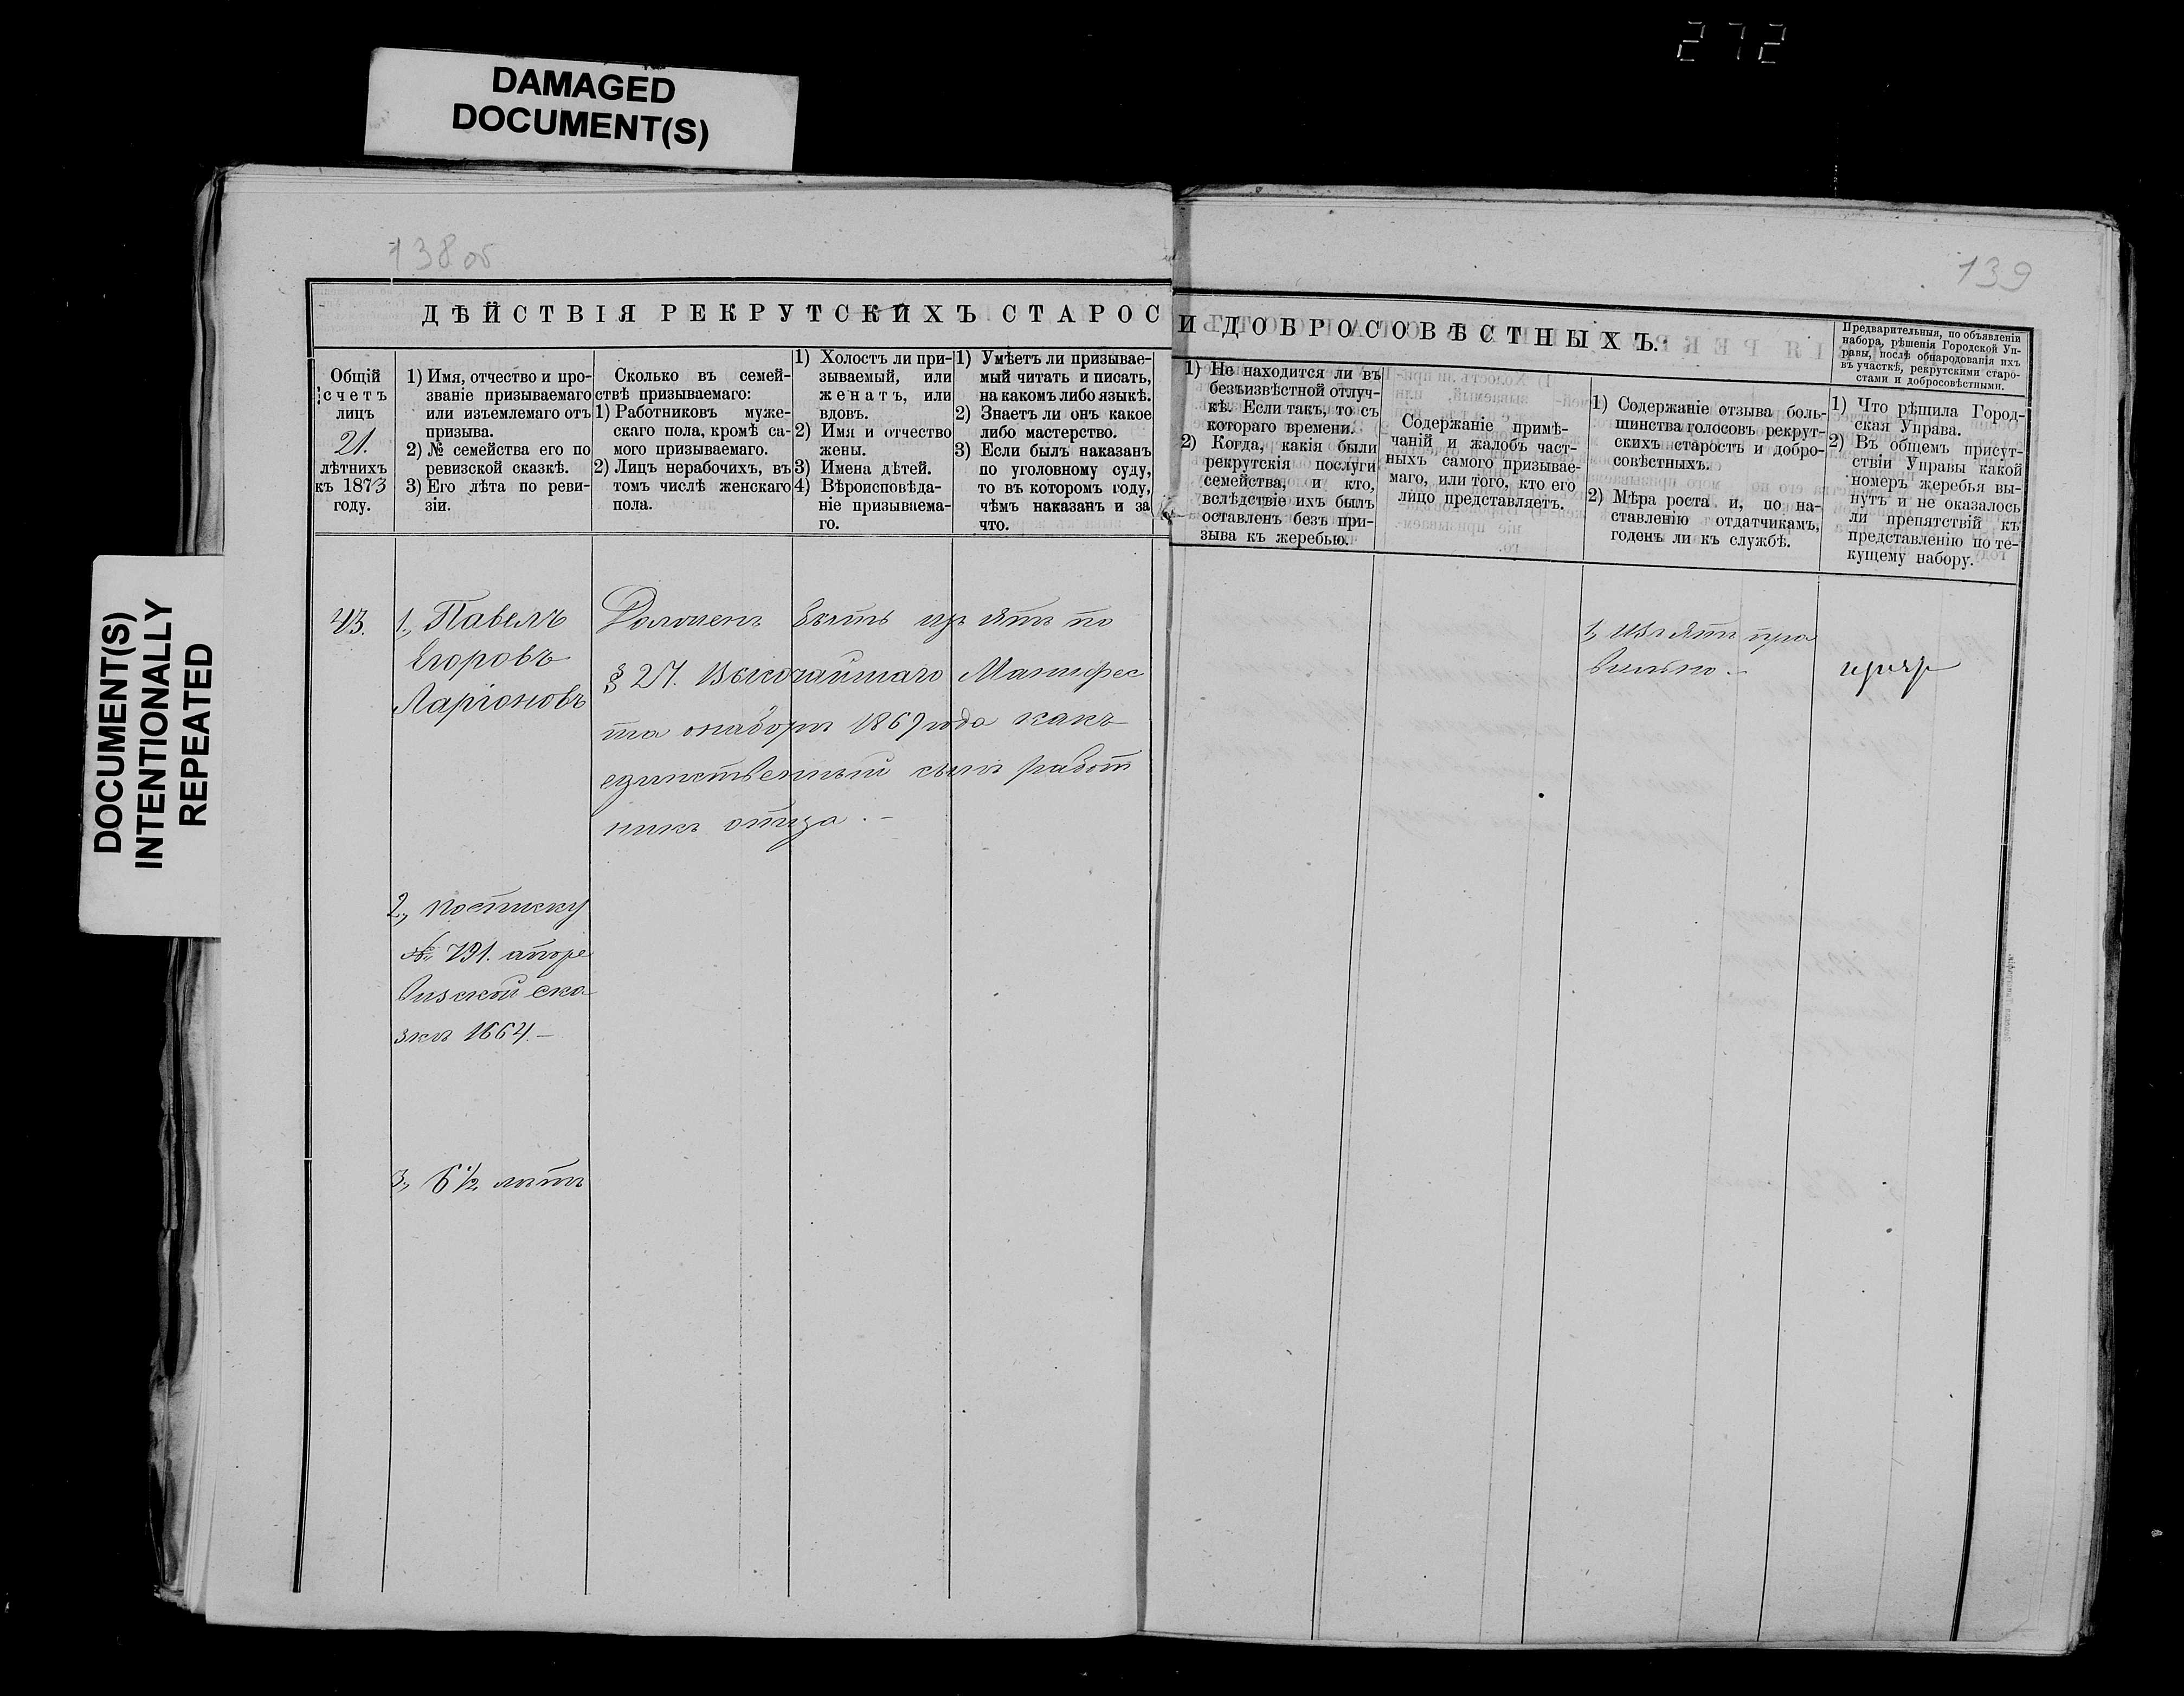 272
DAMAGED
DOCUMENT(S)
DOCUMENT(S)
INTENTIONALLY
REPEATED
138 об
139
ДѢЙСТВІЯ РЕКРУТСКИХЪ СТАРОС
И ДОБРОСОВѢСТНЫХЪ.
Предварительныя, по объявленіи
набора, рѣшенія Городской Уп-
равы, послѣ обнародованія ихъ
въ участкѣ, рекрутскими старо-
стами и добросовѣстными.
Общій
счетъ
лицъ
21.
лѣтнихъ
къ 1873
году.
1) Имя, отчество и про-
званіе призываемаго
или изъемлемаго отъ
призыва.
2) № семейства его по
ревизской сказкѣ.
3) Его лѣта по реви-
зіи.
Сколько въ семей-
ствѣ призываемаго:
1) Работниковъ муже-
скаго пола, кромѣ са-
мого призываемаго.
2) Лицъ нерабочихъ, въ
томъ числѣ женскаго
пола.
1) Холостъ ли при-
зываемый, или
женатъ, или
вдовъ.
2) Имя и отчество
жены.
3) Имена дѣтей.
4) Вѣроисповѣда-
ніе призываема-
го.
1) Умѣетъ ли призывае-
мый читать и писать,
на какомъ либо языкѣ.
2) Знаетъ ли онъ какое
либо мастерство.
3) Если былъ наказанъ
по уголовному суду,
то въ которомъ году,
чѣмъ наказанъ и за
что.
1) Не находится ли въ
безъизвѣстной отлуч-
кѣ. Если такъ, то съ
котораго времени.
2) Когда, какія были
рекрутскія послуги
семейства, и кто,
вслѣдствіе ихъ былъ
оставленъ безъ при-
зыва къ жеребью.
Содержаніе примѣ-
чаній и жалобъ част-
ныхъ самого призывае-
маго, или того, кто его
лицо представляетъ.
1) Содержаніе отзыва боль-
шинства голосовъ рекрут-
скихъ старостъ и добро-
совѣстныхъ.
2) Мѣра роста и, по на-
ставленію отдатчикамъ,
годенъ ли къ службѣ.
1) Что рѣшила Город-
ская Управа.
2) Въ общемъ присут-
ствіи Управы какой
номеръ жеребья вы-
нутъ и не оказалось
ли препятствій къ
представленію по те-
кущему набору.
43.
1., Павелъ
Егоровъ
Ларіоновъ
2., по списку
№ 791. а по ре
визской ска
зкѣ 1664.—
3., 6 1/2 лѣтъ
Долженъ быть изъятъ по
§ 27. Высочайшаго Манифес
та о наборѣ 1869 года какъ
единственный сынъ работ
никъ отца.—
1., изъятъ пра
вильно.—